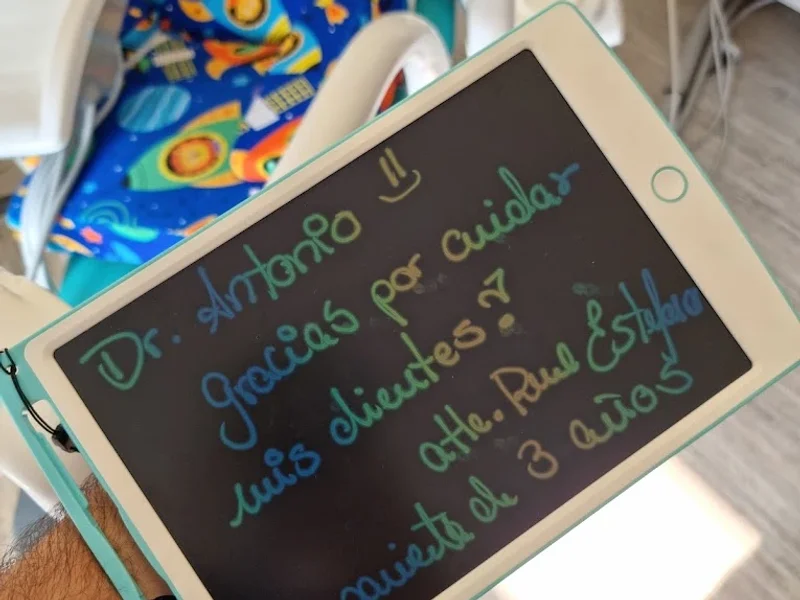 Dr. Antonio
gracias por cuidar
mis dientes?
atte. Raul Estefano
paciente de 3 años